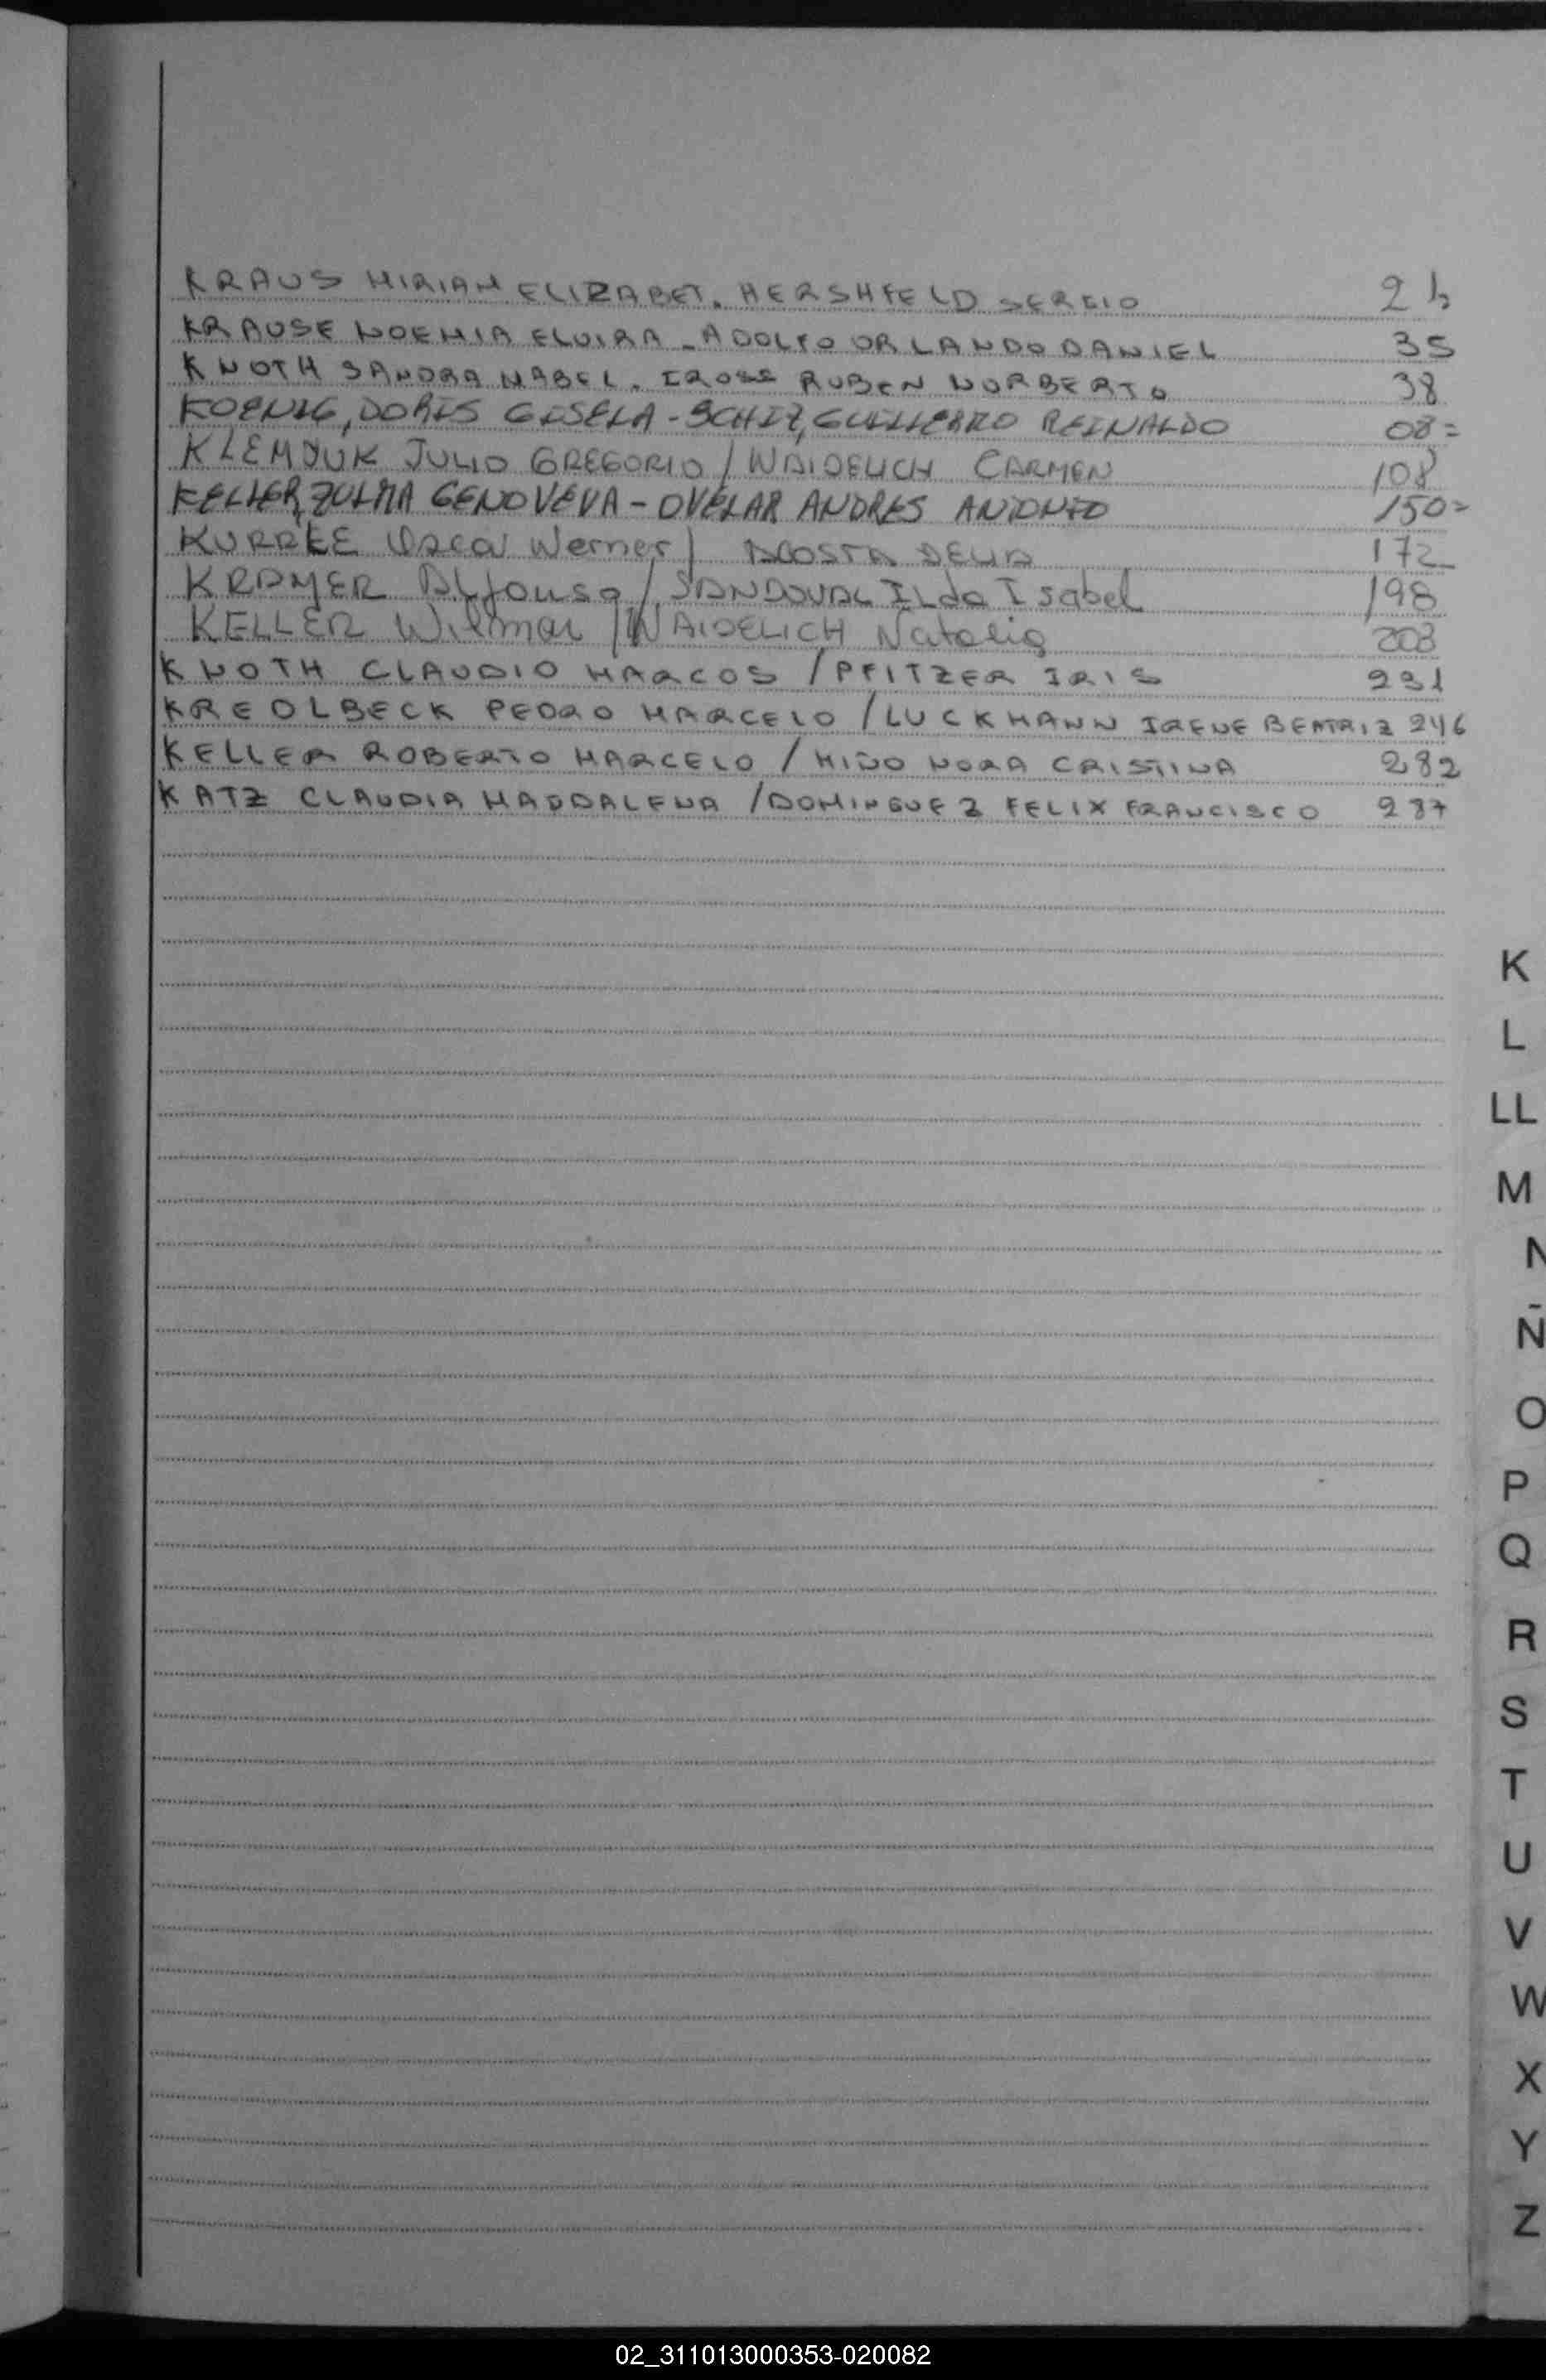 KRAUS MIRIAM ELIZABET. HERSHFELD SERGIO
KRAUSE NOEMIA ELVIRA - ADOLFO ORLANDO DANIEL 35
KNOTH SANDRA MABEL. RUBEN NORBERTO 38
KOENIG, DORIS GISELA - SCHIZ, GUILLERMO REINALDO 08=
KLEMJUK JULIO GREGORIO / WAIDELICH CARMEN 108
KELLER, ZULMA GENOVEVA - OVELAR ANDRES ANTONIO 150=
KURRLE Oscar Werner / ACOSTA DELIA 172
KRAMER Alfonso / SANDOVAL ILda Isabel 198
KELLER Wilmar / WAIDELICH Natalia 203
KNOTH CLAUDIO MARCOS / PFITZER IRIS 231
KREOLBECK PEDRO MARCELO / LUCKMANN IRENE BEATRIZ 246
KELLER ROBERTO MARCELO / MIÑO NORA CRISTINA 282
KATZ CLAUDIA MADDALENA / DOMINGUEZ FELIX FRANCISCO 287
K
L
LL
M
N
Ñ
O
P
Q
R
S
T
U
V
W
X
Y
Z
02_311013000353-020082